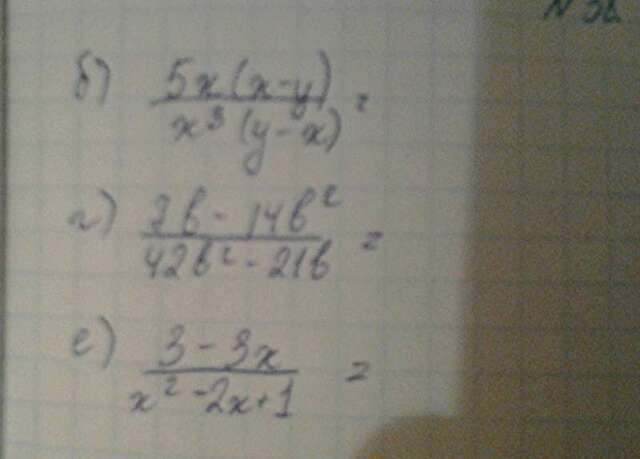 N 36
б) 5x(x-y) / x³(y-x) =
г) 7b - 14b² / 42b² - 21b =
е) 3 - 3x / x² - 2x + 1 =